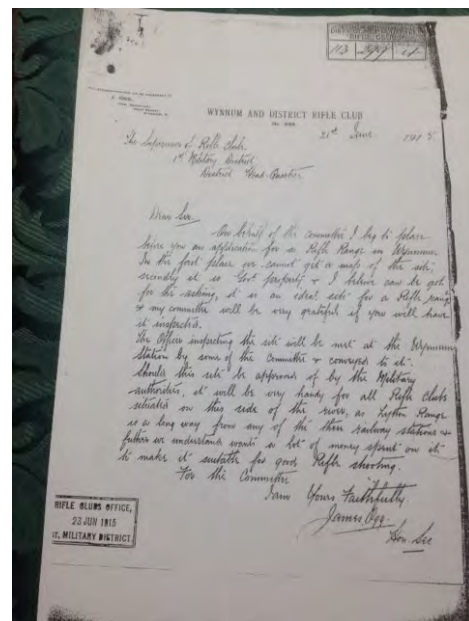 RIFLE CLUBS
WYNNUM AND DISTRICT RIFLE CLUB
21st June 1915.
The Supervisor of Rifle Clubs.
1st Military District.
District Head Quarters
Dear Sir
On behalf of the committee I beg to place
before you an application for a Rifle Range in Wynnum.
In the first place we cannot get a map of the site,
secondly it is Govt property & I believe can be got
for the asking, it is an ideal site for a Rifle range
& my committee will be very grateful if you will have
it inspected.
The Officer inspecting the site will be met at the Wynnum
Station by some of the Committee & conveyed to it.
Should this site be approved of by the Military
authorities, it will be very handy for all Rifle Clubs
situated on this side of the river, as Lytton Range
is a long way from any of the three railway stations &
further we understand wants a lot of money spent on it
to make it suitable for good Rifle shooting.
For the Committee
I am Yours Faithfully.
James Ogg.
Hon. Sec
RIFLE CLUBS OFFICE,
23 JUN 1915
1st. MILITARY DISTRICT.